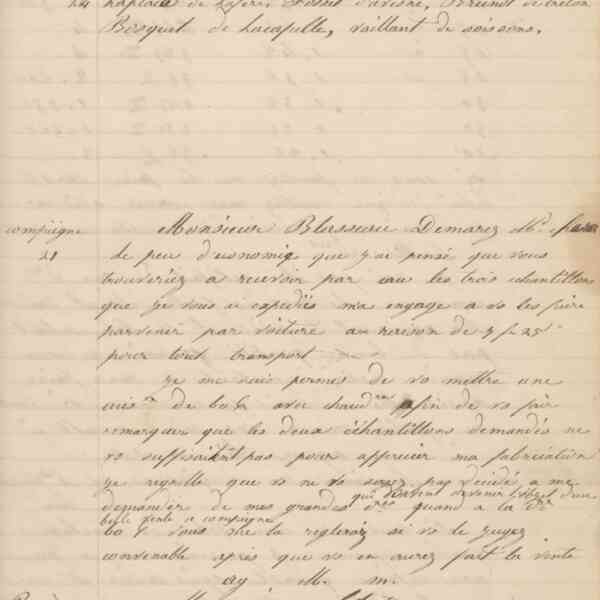 24 de Lafère, d'avesne, Brunot
Bosquet de Lacapelle, vaillant de soissons.
compiègne Monsieur Blasseau Demarez Md.
21 le peu d'economie que j'ai pensé que vous
trouveriez a recevoir par eau les trois échantillons
que je vous ai expédiés ma engagé a vs les faire
parvenir par voiture au raison de 7 f 25
pour tout transport
je me suis permis de vs mettre une
de afin de vs fair
remarquer que les deux échantillons demandés ne
vs suffisaient pas pour apprecier ma fabrication
je regrette que vs ne vs soyez pas décidé a me
demander de mes grandes quand a la
qui devront devenir l'objet d'une
belle vente a compiegne
60 vous me la reglerez si vs le jugez
convenable après que vs en aurez fait la vente
ay M. m.